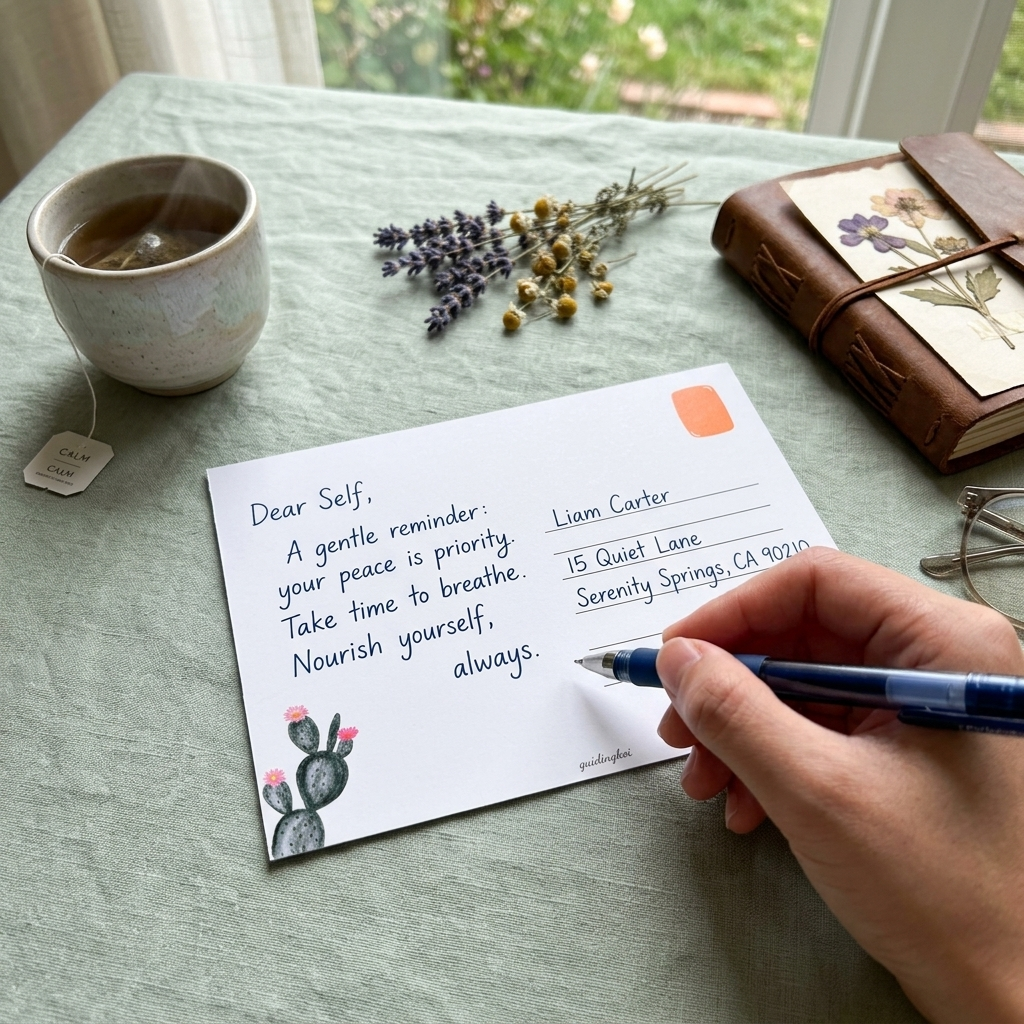 Dear Self,
A gentle reminder:
your peace is priority.
Take time to breathe.
Nourish yourself,
always.
Liam Carter
15 Quiet Lane
Serenity Springs, CA 90210
guidingkoi
CALM
CALM